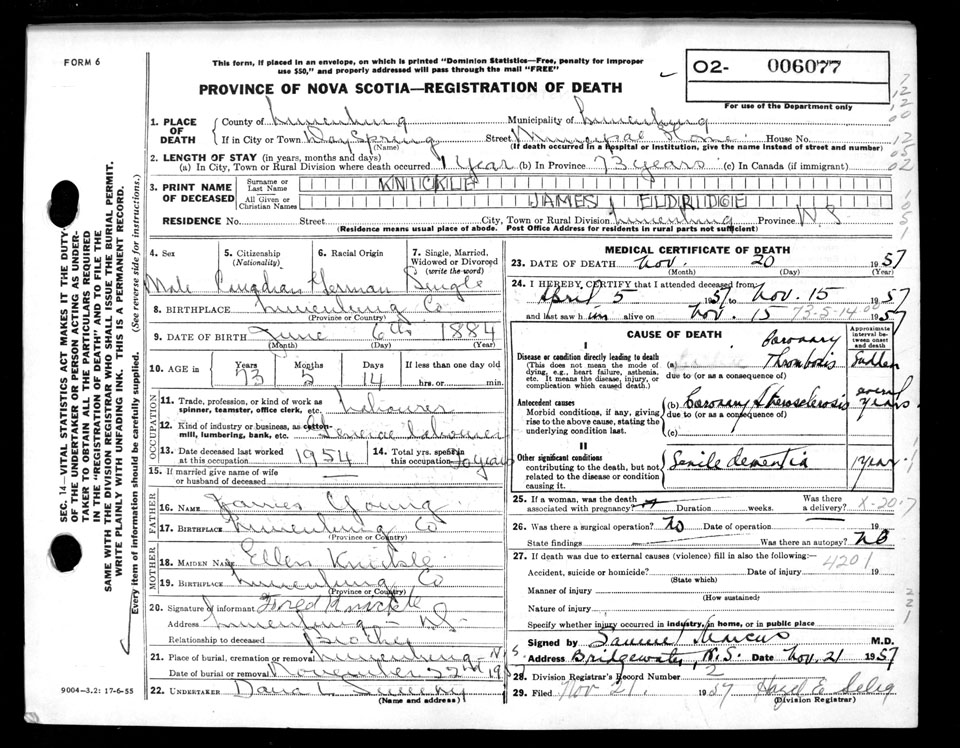 FORM 6
This form, if placed in an envelope, on which is printed "Dominion Statistics—Free, penalty for improper
use $50," and properly addressed will pass through the mail "FREE"
O2- 006077
For use of the Department only
PROVINCE OF NOVA SCOTIA—REGISTRATION OF DEATH
1. PLACE OF DEATH County of Lunenburg Municipality of Lunenburg
If in City or Town DaySpring (Name) Street Municipal Home House No.
(If death occurred in a hospital or institution, give the name instead of street and number)
2. LENGTH OF STAY (in years, months and days)
(a) In City, Town or Rural Division where death occurred 1 year (b) In Province 73 years (c) In Canada (if immigrant)
3. PRINT NAME OF DECEASED Surname or Last Name KNICKLE
All Given or Christian Names JAMES ELDRIDGE
RESIDENCE No. Street City, Town or Rural Division Lunenburg Province N S
(Residence means usual place of abode. Post Office Address for residents in rural parts not sufficient)
4. Sex 5. Citizenship (Nationality) 6. Racial Origin 7. Single, Married, Widowed or Divorced (write the word)
Male Canadian German Single
8. BIRTHPLACE Lunenburg Co
(Province or Country)
9. DATE OF BIRTH June 6th 1884
(Month) (Day) (Year)
10. AGE in Years Months Days If less than one day old
73 5 14 hrs. or min.
OCCUPATION
11. Trade, profession, or kind of work as spinner, teamster, office clerk, etc. Labourer
12. Kind of industry or business, as cotton-mill, lumbering, bank, etc. General Labourer
13. Date deceased last worked at this occupation 1954 14. Total yrs. spent in this occupation 50 years
15. If married give name of wife or husband of deceased
FATHER
16. NAME James Young
17. BIRTHPLACE Lunenburg Co
(Province or Country)
MOTHER
18. MAIDEN NAME Ellen Knickle
19. BIRTHPLACE Lunenburg Co
(Province or Country)
20. Signature of informant Fred Knickle
Address Lunenburg - NS-
Relationship to deceased Brother
21. Place of burial, cremation or removal Lunenburg N
Date of burial or removal November 22nd 19
22. UNDERTAKER Dana L Sweeny
(Name and address)
MEDICAL CERTIFICATE OF DEATH
23. DATE OF DEATH Nov. 20 1957
(Month) (Day) (Year)
24. I HEREBY CERTIFY that I attended deceased from
April 5 1957 to Nov. 15 1957
and last saw him alive on Nov. 15 73-5-14 1957
CAUSE OF DEATH
Approximate interval between onset and death
I
Disease or condition directly leading to death
(This does not mean the mode of dying, e.g., heart failure, asthenia, etc. It means the disease, injury, or complication which caused death.)
(a) Coronary Thrombosis Sudden
due to (or as a consequence of)
Antecedent causes
Morbid conditions, if any, giving rise to the above cause, stating the underlying condition last.
(b) Coronary Atherosclerosis several years
due to (or as a consequence of)
(c)
II
Other significant conditions
contributing to the death, but not related to the disease or condition causing it.
Senile dementia 1 year
25. If a woman, was the death associated with pregnancy? Duration weeks. Was there a delivery? X-20-7
26. Was there a surgical operation? No Date of operation 19
State findings Was there an autopsy? No
27. If death was due to external causes (violence) fill in also the following:—
4201
Accident, suicide or homicide? Date of injury 19
(State which)
Manner of injury
(How sustained)
Nature of injury
Specify whether injury occurred in industry, in home, or in public place
Signed by Samuel Marcus M.D.
Address Bridgewater, N.S. Date Nov. 21 1957
28. Division Registrar's Record Number 2
29. Filed Nov 21. 1957 Hazel E Selig
(Division Registrar)
SEC. 14—VITAL STATISTICS ACT MAKES IT THE DUTY
OF THE UNDERTAKER OR PERSON ACTING AS UNDER-
TAKER TO OBTAIN ALL THE PARTICULARS REQUIRED
IN THE "REGISTRATION OF DEATH" AND TO FILE THE
SAME WITH THE DIVISION REGISTRAR WHO SHALL ISSUE THE BURIAL PERMIT.
WRITE PLAINLY WITH UNFADING INK. THIS IS A PERMANENT RECORD.
Every item of information should be carefully supplied. (See reverse side for instructions.)
9004-3.2: 17-6-55